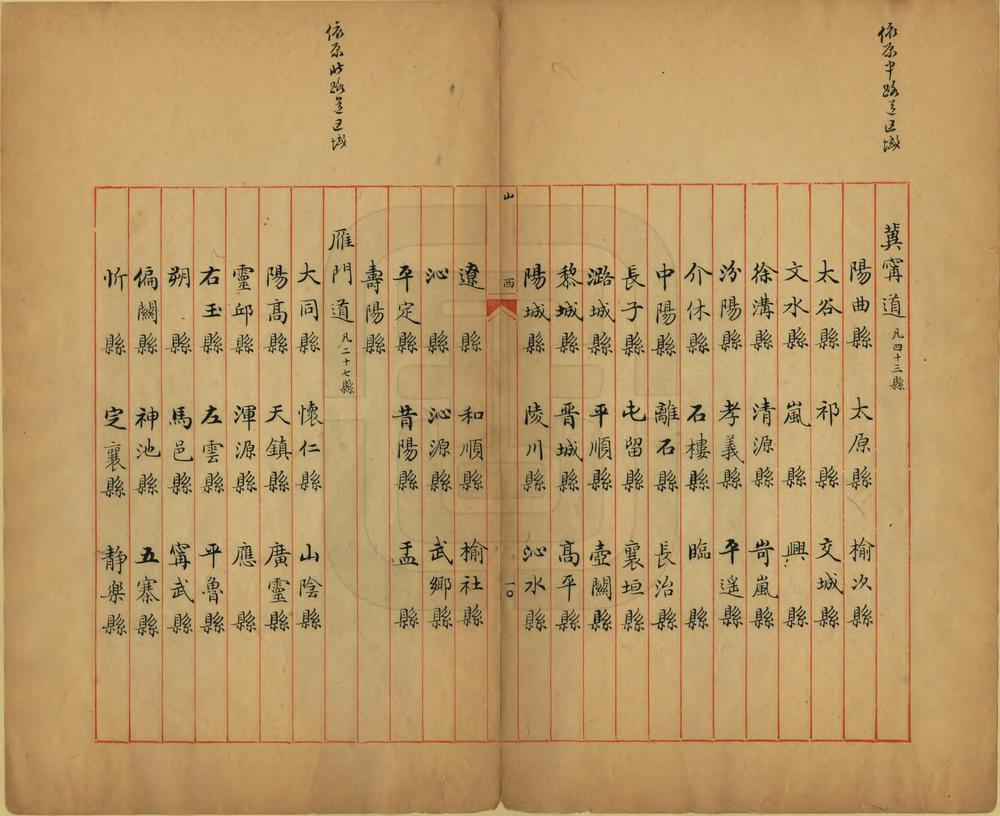 依原中路道区域
冀寧道 凡四十三縣
陽曲縣 太原縣 榆次縣
太谷縣 祁縣 交城縣
文水縣 嵐縣 興縣
徐溝縣 清源縣 岢嵐縣
汾陽縣 孝義縣 平遙縣
介休縣 石樓縣 臨縣
中陽縣 離石縣 長治縣
長子縣 屯留縣 襄垣縣
潞城縣 平順縣 壺關縣
黎城縣 晉城縣 高平縣
陽城縣 陵川縣 沁水縣
山西
一〇
遼縣 和順縣 榆社縣
沁縣 沁源縣 武鄉縣
平定縣 昔陽縣 盂縣
壽陽縣
依原北路道区域
雁門道 凡二十七縣
大同縣 懷仁縣 山陰縣
陽高縣 天鎮縣 廣靈縣
靈邱縣 渾源縣 應縣
右玉縣 左雲縣 平魯縣
朔縣 馬邑縣 寗武縣
偏關縣 神池縣 五寨縣
忻縣 定襄縣 靜樂縣